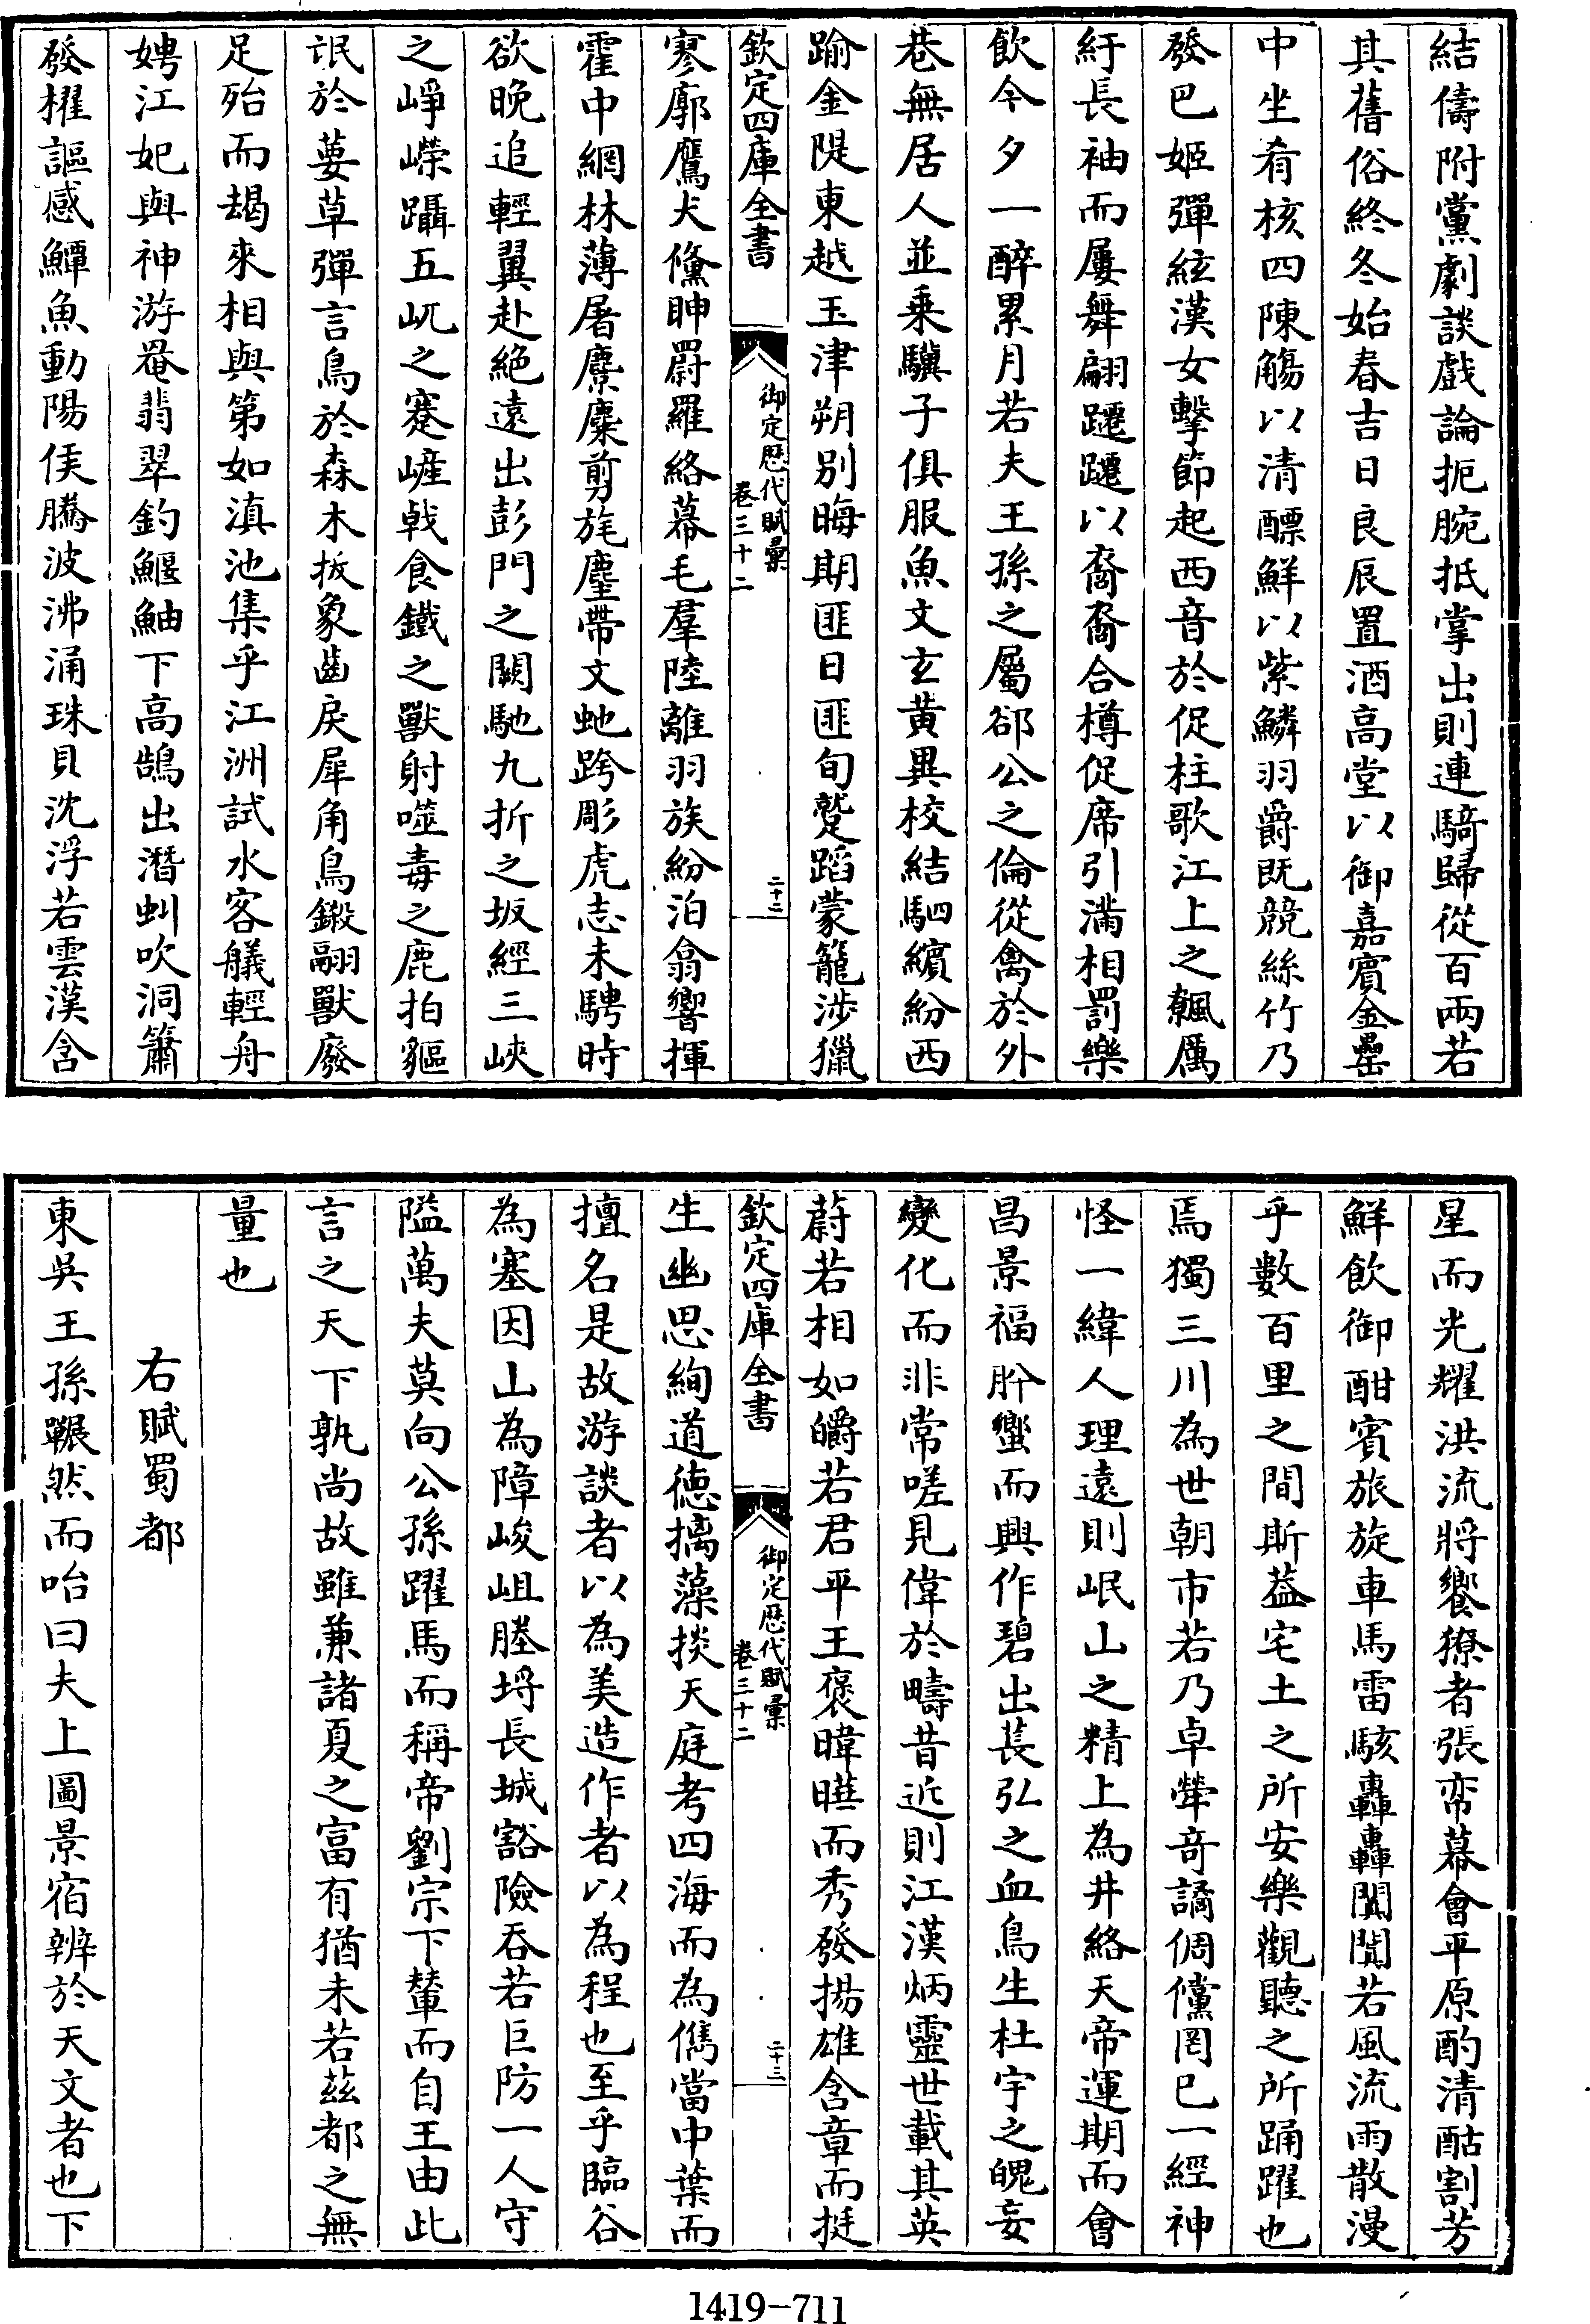 結儔附黨劇談戲論扼腕抵掌出則連騎歸從百兩若
其舊俗終冬始春吉日良辰置酒高堂以御嘉賓金罍
中坐肴核四陳觴以清醥鮮以紫鱗羽爵既競絲竹乃
發巴姬彈絃漢女擊節起西音於促柱歌江上之飉厲
紆長袖而屢舞翩躚躚以裔裔合樽促席引滿相罰樂
飲今夕一醉累月若夫王孫之屬郤公之倫從禽於外
巷無居人並乗驥子俱服魚文玄黄異校結駟繽紛西
踰金隄東越玉津朔别晦期匪日匪旬蹵蹈蒙籠涉獵
欽定四庫全書
御定歴代賦彙
卷三十二
二十二
寥廓鷹犬倏眒罻羅絡幕毛羣陸離羽族紛泊翕響揮
霍中網林薄屠麖麋剪旄麈帶文虵跨彫虎志未騁時
欲晚追輕翼赴絶遠出彭門之闕馳九折之坂經三峽
之崢嶸躡五屼之蹇嵼戟食鐵之獸射噬毒之鹿拍貙
氓於葽草彈言鳥於森木拔象齒戾犀角鳥鎩翮獸廢
足殆而朅來相與第如滇池集乎江洲試水客艤輕舟
娉江妃與神游罨翡翠釣鰋鮋下高鵠出潛虬吹洞簫
發櫂謳感鱏魚動陽侯騰波沸涌珠貝沈浮若雲漢含
星而光耀洪流將饗獠者張帟幕會平原酌清酤割芳
鮮飲御酣賓旅旋車馬雷駭轟轟闐闐若風流雨散漫
乎數百里之間斯葢宅土之所安樂觀聽之所踊躍也
焉獨三川為世朝市若乃卓犖奇譎倜儻罔已一經神
怪一緯人理遠則岷山之精上為井絡天帝運期而會
昌景福肸蠁而興作碧出萇弘之血鳥生杜宇之魄妄
變化而非常嗟見偉於疇昔近則江漢炳靈世載其英
蔚若相如皭若君平王褒暐曄而秀發揚雄含章而挺
欽定四庫全書
御定歴代賦彙
卷三十二
二十三
生幽思絢道德摛藻掞天庭考四海而為儁當中葉而
擅名是故游談者以為美造作者以為程也至乎臨谷
為塞因山為障峻岨塍埒長城豁險吞若巨防一人守
隘萬夫莫向公孫躍馬而稱帝劉宗下輦而自王由此
言之天下孰尚故雖兼諸夏之富有猶未若茲都之無
量也
右賦蜀都
東吳王孫囅然而咍曰夫上圖景宿辨於天文者也下
1419-711